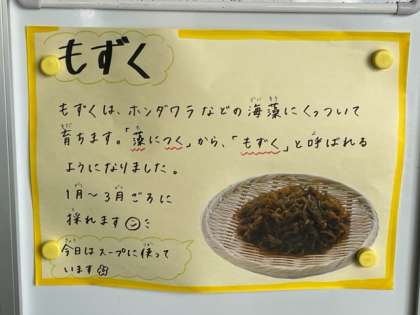 もずく
もずくは、ホンダワラなどの海藻にくっついて
育ちます。「藻につく」から、「もずく」と呼ばれる
ようになりました。
1月～3月ごろに
採れます
今日はスープに使って
います